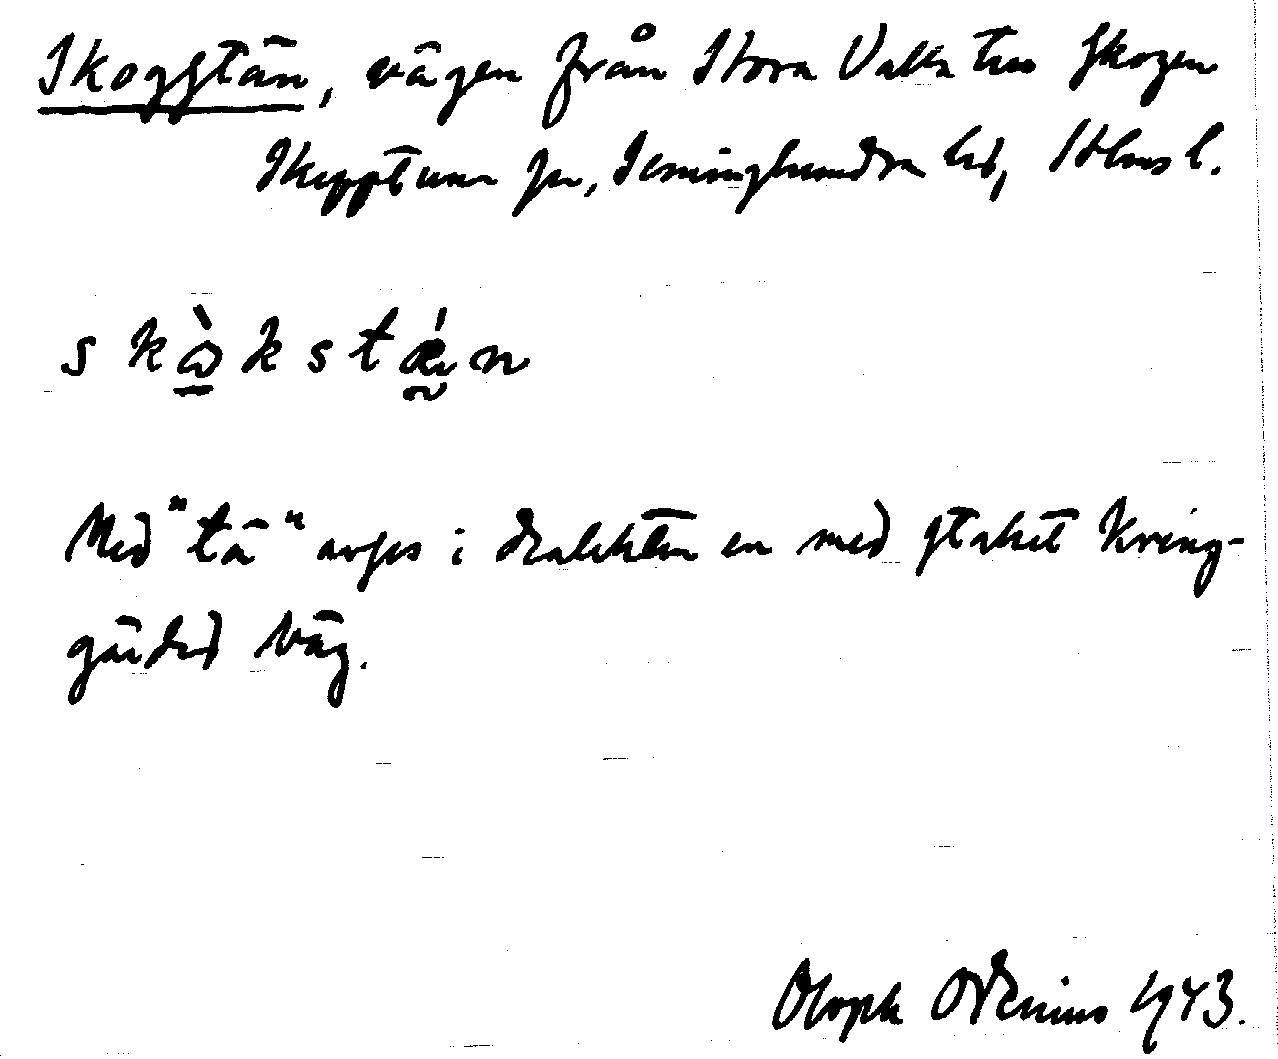 Skogstän, vägen från Stora Valla till skogen
Skepptuna sn, Seminghundra hd, Sthms l.
skὼkstǽn
Med "tä" avses i dialekten en med staket kring-
gärdad väg.
Oloph Odenius 1943.